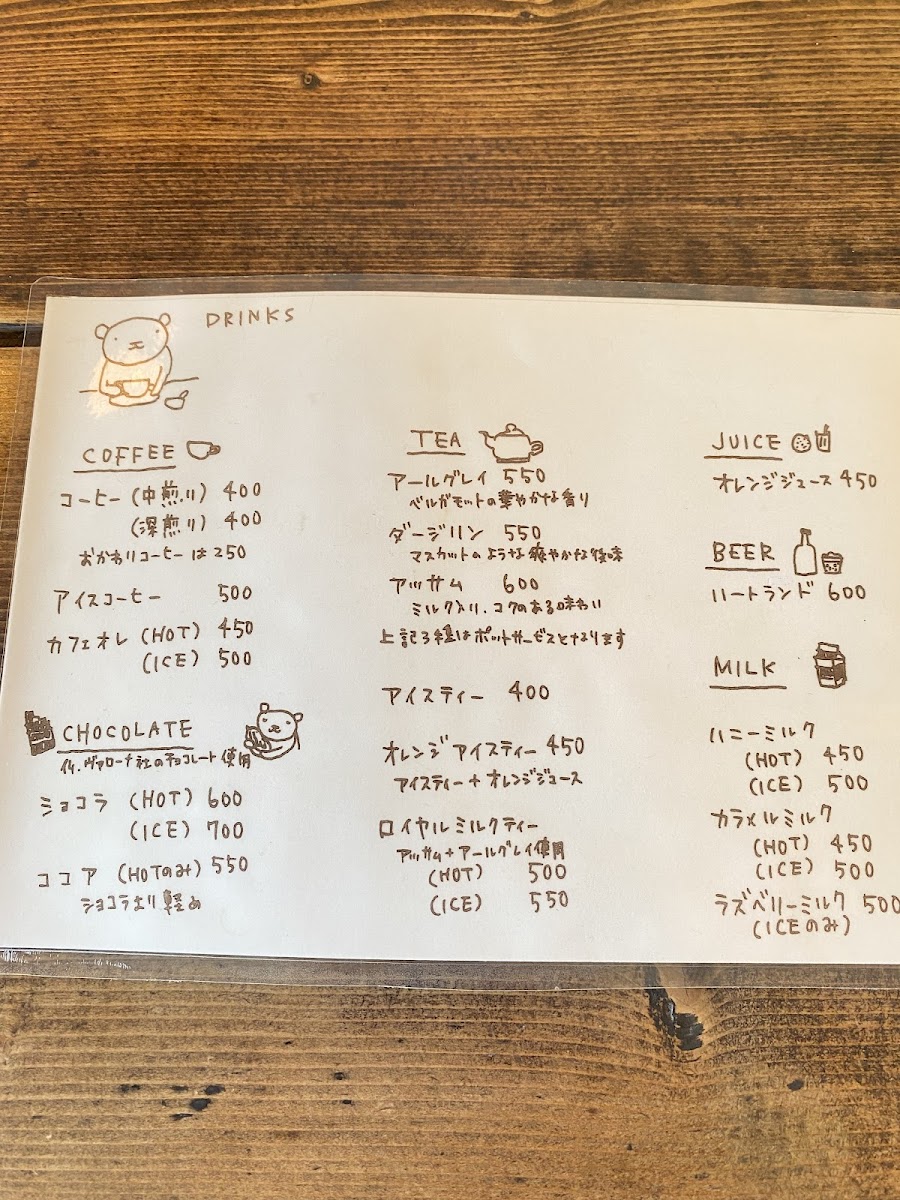 DRINKS
COFFEE
コーヒー（中煎り） 400
（深煎り） 400
おかわりコーヒーは250
アイスコーヒー 500
カフェオレ（HOT） 450
（ICE） 500
CHOCOLATE
仏.ヴァローナ社のチョコレート使用
ショコラ（HOT） 600
（ICE） 700
ココア（HOTのみ） 550
ショコラより軽め
TEA
アールグレイ 550
ベルガモットの華やかな香り
ダージリン 550
マスカットのような爽やかな後味
アッサム 600
ミルク入り.コクのある味わい
上記3種はポットサービスとなります
アイスティー 400
オレンジアイスティー 450
アイスティー+オレンジジュース
ロイヤルミルクティー
アッサム+アールグレイ使用
（HOT） 500
（ICE） 550
JUICE
オレンジジュース 450
BEER
ハートランド 600
MILK
ハニーミルク
（HOT） 450
（ICE） 500
カラメルミルク
（HOT） 450
（ICE） 500
ラズベリーミルク 500
（ICEのみ）